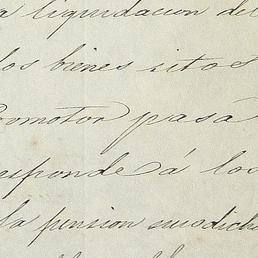 a liquidacion del
los bienes sitos
romotor pasá
sponde á los
la pension susodicha